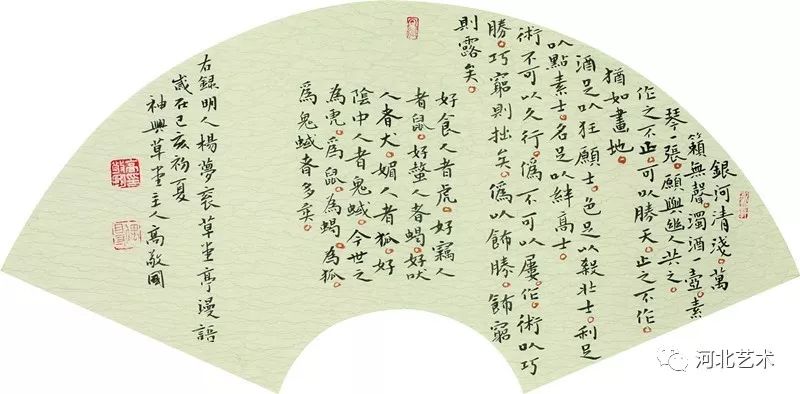 銀河清淺。萬
籟無聲。濁酒一壺。素
琴一張。願與幽人共之。
作之不止。可以勝天。止之不作。
猶如畫地。
酒足㕥狂願士。色足以殺壯士。利足
㕥點素士。名足以絆高士。
術不可以久行。僞不可以屢作。術㕥巧
勝。巧窮則拙矣。僞以飾勝。飾窮
則露矣。
好食人者虎。好竊人
者鼠。好螫人者蝎。好吠
人者犬。媚人者狐。好
陰中人者鬼蜮。今世之
為虎。為鼠。為蝎。為狐。
爲鬼蜮者多矣。
右録明人楊夢袞草堂亭漫語
歲在己亥初夏
神興草堂主人高敬國
河北艺术